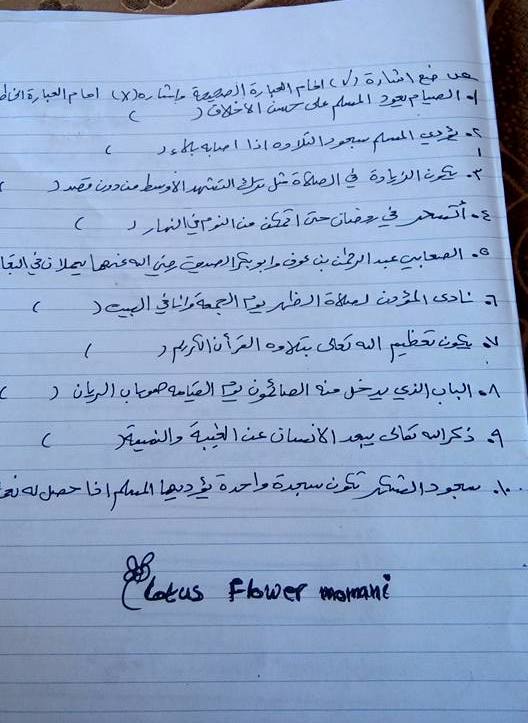 ضع اشارة (√) امام العبارة الصحيحة واشارة (x) امام العبارة
١. الصيام يعود المسلم على حسن الأخلاق ( )
٢. يؤدي المسلم سجود التلاوة اذا اصابه بلاء ( )
٣. يكون الزيادة في الصلاة مثل ترك التشهد الأوسط من دون قصد ( )
٤. أتسحر في رمضان حتى اتمكن من النوم في النهار ( )
٥. الصحابي عبد الرحمن بن عوف وابو بكر الصديق رضي الله عنهما يعملان في
٦. نادى المؤذن لصلاة الظهر يوم الجمعة وانا في البيت ( )
٧. يكون تعظيم الله تعالى بتلاوه القرأن الكريم ( )
٨. الباب الذي يدخل منه الصائمون يوم القيامه هو باب الريان ( )
٩. ذكر الله تعالى يبعد الانسان عن الغيبة والنميمة ( )
١٠. سجود الشكر تكون سجدة واحدة يؤديها المسلم اذا حصل له
Lotus Flower momani